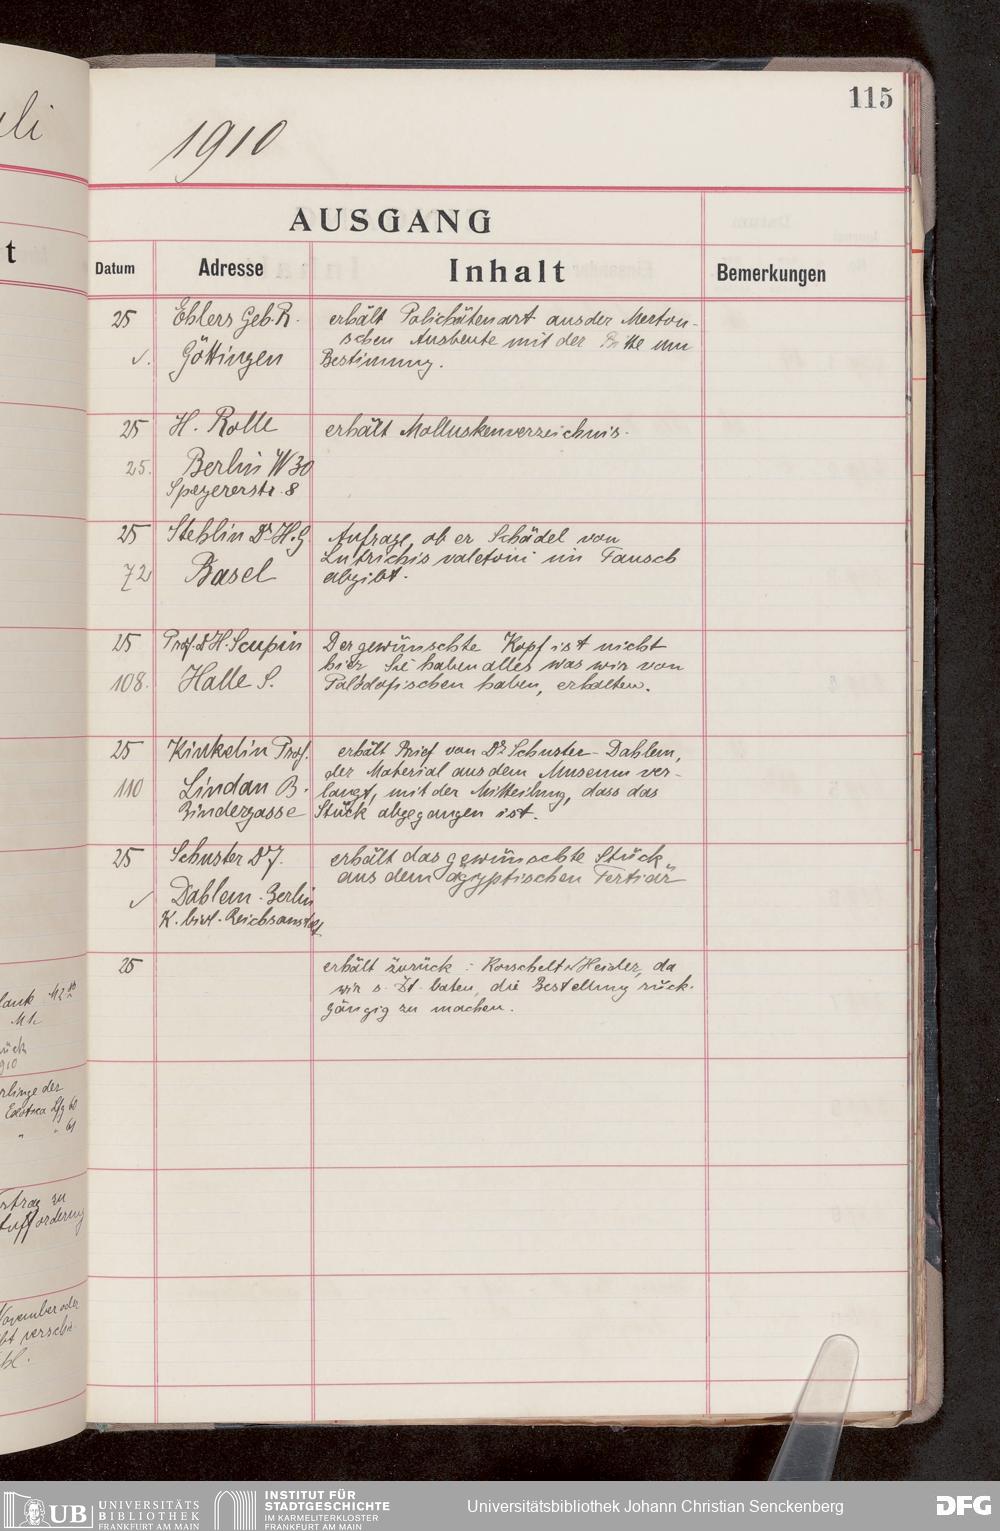 115
1910
AUSGANG
Datum Adresse Inhalt Bemerkungen
25 Ehlers Geb. R. erhält Polichätenart aus der Merton-
schen Ausbeute mit der Bitte um
Göttingen Bestimmung.
25 H. Rolle erhält Molluskenverzeichnis.
25. Berlin W 30
Speyererstr. 8
25 Stehlin Dr. H. G. Anfrage, ob er Schädel von
Lutrichis valetoni im Tausch
72 Basel abgibt.
25 Prof. Dr H. Scupin Der gewünschte Kopf ist nicht
hier Sie haben alles was wir von
108. Halle S. haben, erhalten.
25 Kinkelin Prof. erhält Brief von Dr. Schuster - Dahlem,
der Material aus dem Museum ver-
110 Lindau B. langt, mit der Mitteilung, dass das
Bindergasse Stück abgegangen ist.
25 Schuster Dr J. erhält das gewünschte Stück
aus dem ägyptischen Tertiär
Dahlem - Berlin
K. biol. Reichsanstalt
25 erhält zurück : Korschelt u Heider, da
wir s. Zt. baten, die Bestellung rück-
gängig zu machen.
uli
t
rlinge der
Exotica Lfg 60
" " 61
November oder
UB UNIVERSITÄTS
BIBLIOTHEK
FRANKFURT AM MAIN
INSTITUT FÜR
STADTGESCHICHTE
IM KARMELITERKLOSTER
FRANKFURT AM MAIN
Universitätsbibliothek Johann Christian Senckenberg
DFG